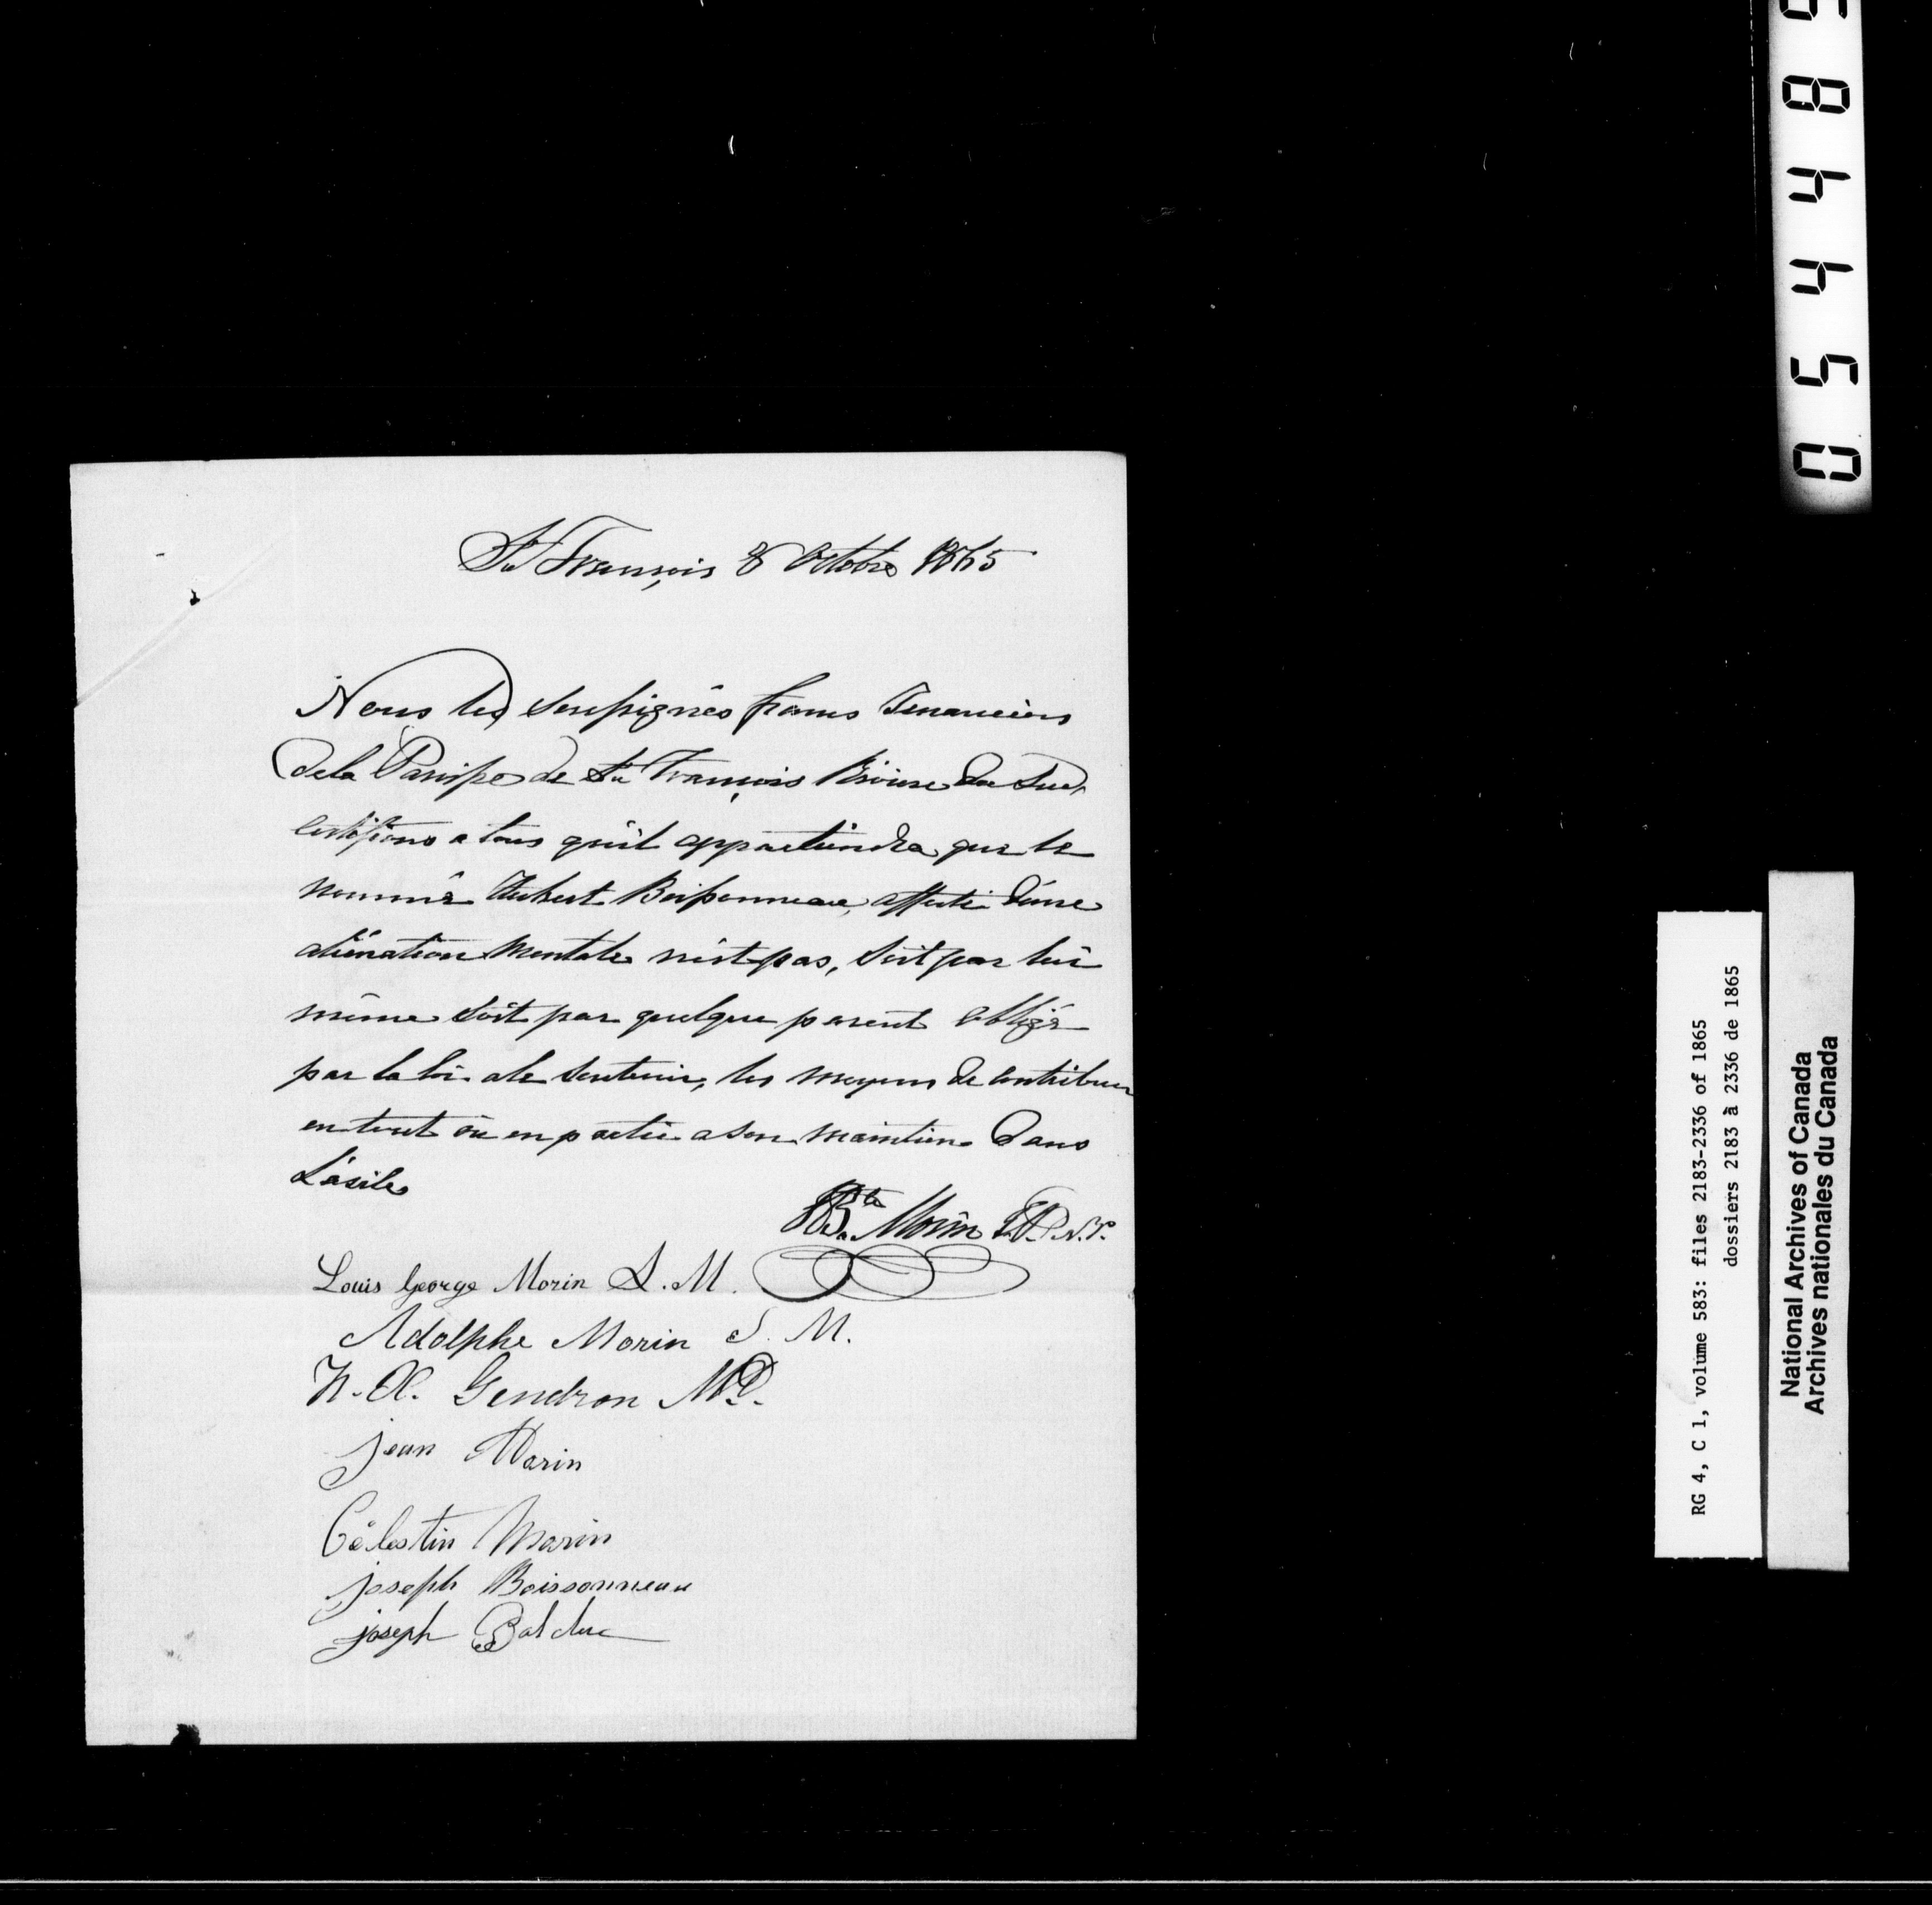 St François 8 Octobre 1865
Nous les soussignés francs tenanciers
de la Paroisse de St François Rivière du Sud,
certifions a tous qu'il appartiendra que le
nommé Hubert Boissonneau, affecté d'une
aliénation mentale n'est pas, soit par lui
même soit par quelque parent obligé
par la loi a le soutenir, les moyens de contribuer
en tout ou en partie a son maintien dans
L'asile
Bte Morin J.P. N.P.
Louis George Morin L. M.
Adolphe Morin S. M.
N. Gendron MD.
jean Morin
Célestin Morin
joseph Boissonneau
joseph Balduc
054485
RG 4, C 1, volume 583: files 2183-2336 of 1865
dossiers 2183 à 2336 de 1865
National Archives of Canada
Archives nationales du Canada